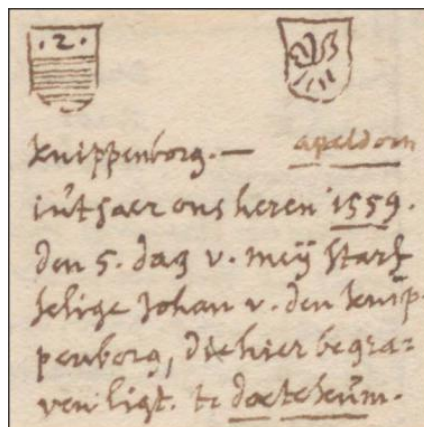 .2.
knippenborg. — apeldorn
int Jaer ons heren 1559.
den 5. dag v. meÿ starf
selige Johan v. den knip-
penborg, die hier begra=
ven ligt. te doetekum.